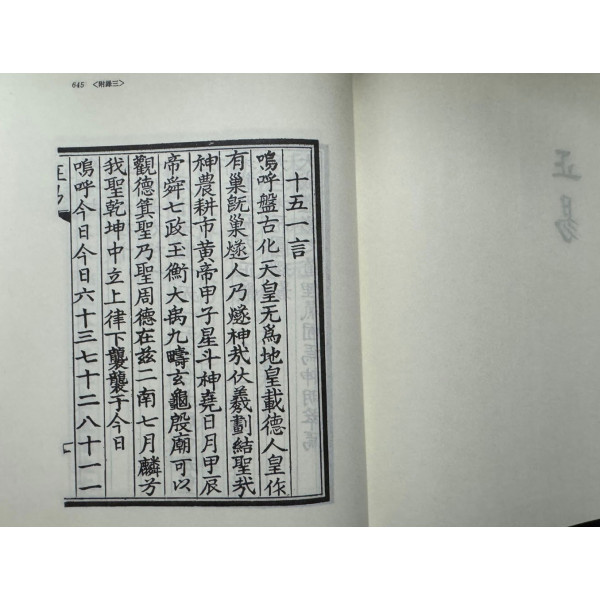 645 〈附錄三〉
十五一言
嗚呼盤古化天皇无爲地皇載德人皇作
有巢旣巢燧人乃燧神哉伏羲劃結聖哉
神農耕市黃帝甲子星斗神堯日月甲辰
帝舜七政玉衡大禹九疇玄龜殷廟可以
觀德箕聖乃聖周德在玆二南七月麟兮
我聖乾坤中立上律下襲襲于今日
嗚呼今日今日六十三七十二八十一一
正易
正易